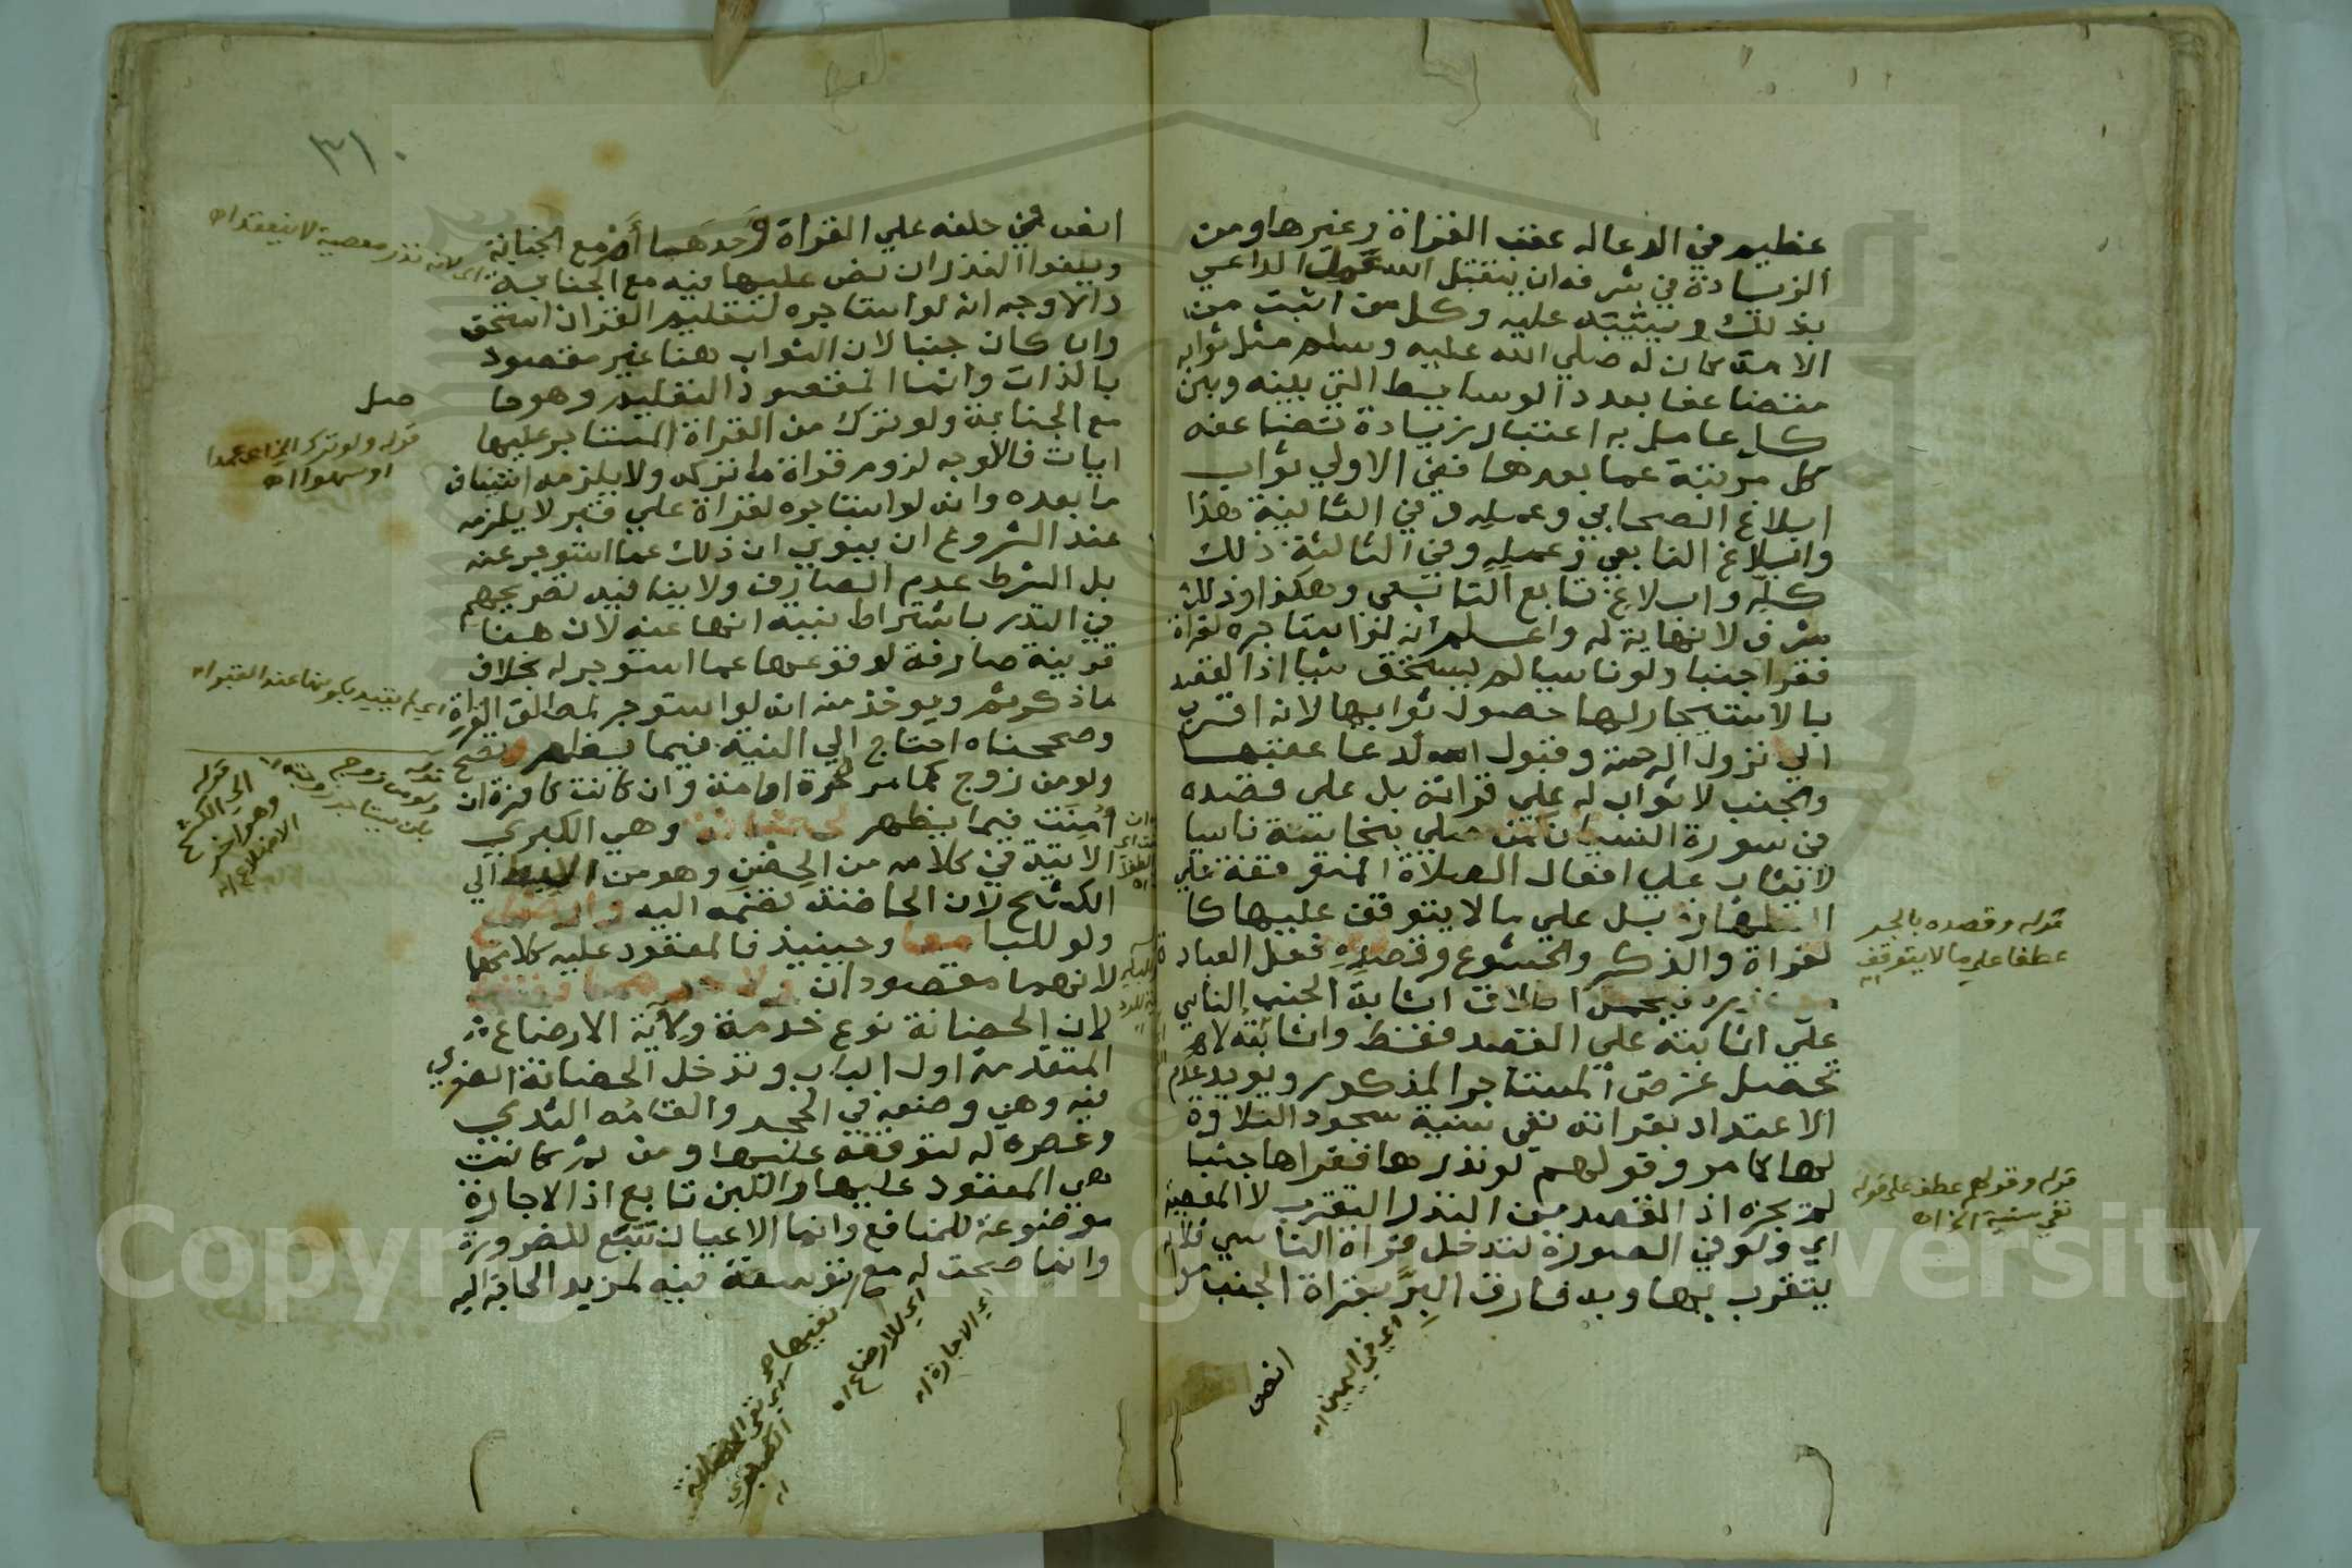 عظيم في الدعا له عقب القراة وغيرها ومن
الزيادة في شرفه ان يتقبل الله عمل الداعي
بذلك ويثيبه عليه وكل من اثيب من
الامة كان له صلي الله عليه وسلم مثل ثوابه
متضاعفا بعدد الوسايط التي بينه وبين
كل عامل به اعتبار زيادة تضاعفه
كل مرتبة عما بعدها ففي الاولي ثواب
ابلاغ الصحابي وعمله وفي الثانية هذا
وابلاغ التابعي وعمله وفي الثالثة ذلك
كله وابلاغ تابع التابعي وهكذا وذلك
شرف لا نهاية له واعلم انه لو استاجره لقراة
فقرا جنبا ولو ناسيا لم يستحق شيا اذ القصد
بالاستيجار لها حصول ثوابها لانه اقرب
الي نزول الرحمة وقبول الدعا عقبها
والجنب لا ثواب له علي قراته بل علي قصده
في صورة النسيان كمن صلي بنجاسة ناسيا
لا يثاب علي افعال الصلاة المتوقفة علي
الطهارة بل علي ما لا يتوقف عليها كا
لقراة والذكر والخشوع وقصده فعل العبادة
فيحمل اطلاق اثابة الجنب الناسي
علي اثابته علي القصد فقط واثابته لا
تحصل غرض المستاجر المذكور ويويد عدم
الاعتداد بقراته نفي سنية سجود التلاوة
لها كما مر وقولهم لو نذرها فقراها جنبا
لم يجزه اذ القصد من النذر التقرب لا المعصية
اي ولو في الصورة لتدخل قراة الناسي فلا
يتقرب بها وبه فارق البر بقراة الجنب
انص
اي في اليمين اه
قوله وقصده بالجر
عطفا علي ما لا يتوقف
اه
قوله وقولهم عطف علي قوله
نفي سنية الخ اه
٣١٠
انص في حلفه علي القراة وحدها ام مع الجنابة
ويلغوا النذر ان نص عليها فيه مع الجنابة
والاوجه انه لو استاجره لتعليم القران استحق
وان كان جنبا لان الثواب هنا غير مقصود
بالذات وانما المقصود التعليم وهو حا
صل
مع الجنابة ولو ترك من القراة المستاجر عليها
ايات فالاوجه لزوم قراة ما تركه ولا يلزمه استيناف
ما بعده وانه لو استاجره لقراة علي قبر لا يلزمه
عند الشروع ان ينوي ان ذلك عما استوجر عنه
بل الشرط عدم الصارف ولا ينافيه تصريحهم
في النذر باشتراط نيته انها عنه لان هنا
قرينة صارفة لوقوعها عما استوجر له بخلاف
ما ذكر ثم ويوخذ منه انه لو استوجر لمطلق القراة
وصححناه احتاج الي النية فيما يظهر وتصح
ولو من زوج كما مر لحرة او امة وان كانت كافرة ان
امنت فيما يظهر لحضانة وهي الكبري
الاتية في كلامه من الحضن وهو من الابط الي
الكشح لان الحاضنة تضمه اليه وارضاع
ولو للبا معا وحينيذ فالمعقود عليه كلاهما
لانهما مقصودان ولاحدهما فقط
لان الحضانة نوع خدمة ولاية الارضاع
المتقدمة اول الباب وتدخل الحضانة الصغري
فيه وهي وضعه في الحجر والقامه الثدي
وعصره له لتوقفه عليها ومن ثم كانت
هي المعقود عليها واللبن تابع اذ الاجارة
موضوعة للمنافع وانما الاعيان تتبع للضرورة
وانما صحت له مع نفيها توسعة فيه لمزيد الحاجة اليه
اي لانه نذر معصية لا ينعقد اه
قوله ولو ترك الخ اي عمدا
او سهوا اه
اي لم يقيد بكونها عند القبر اه
قوله
ولو من زوج
بان يستاجر زوجته اه
قوله
الي الكشح
وهو اخر
الاضلاع اه
اي الاجارة اه
اي للارضاع اه
اي نفي الحضانة
الصغري
اه